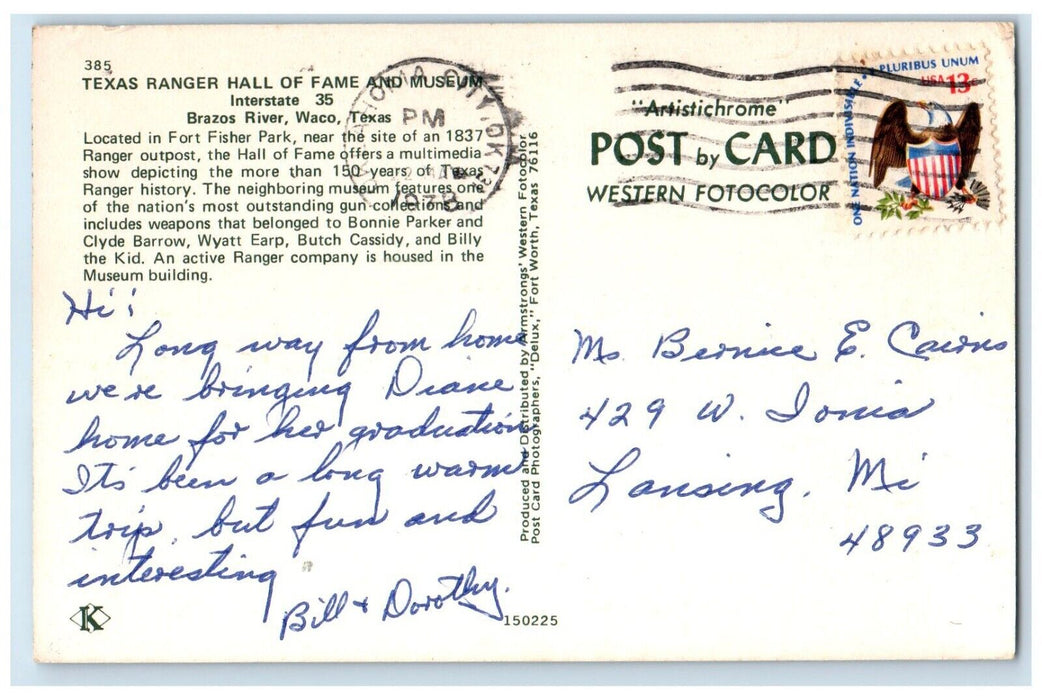 385
TEXAS RANGER HALL OF FAME AND MUSEUM
Interstate 35
Brazos River, Waco, Texas
Located in Fort Fisher Park, near the site of an 1837
Ranger outpost, the Hall of Fame offers a multimedia
show depicting the more than 150 years of Texas
Ranger history. The neighboring museum features one
of the nation's most outstanding gun collections and
includes weapons that belonged to Bonnie Parker and
Clyde Barrow, Wyatt Earp, Butch Cassidy, and Billy
the Kid. An active Ranger company is housed in the
Museum building.
Hi!
Long way from home
we're bringing Diane
home for her graduation
It's been a long warm
trip, but fun and
interesting
Bill + Dorothy.
K
150225
Produced and Distributed by Armstrongs' Western Fotocolor
Post Card Photographers, "Delux," Fort Worth, Texas 76116
PM
"Artistichrome"
POST by CARD
WESTERN FOTOCOLOR
ONE NATION INDIVISIBLE
E PLURIBUS UNUM
USA 13c
Ms. Bernice E. Cairns
429 W. Ionia
Lansing, Mi
48933